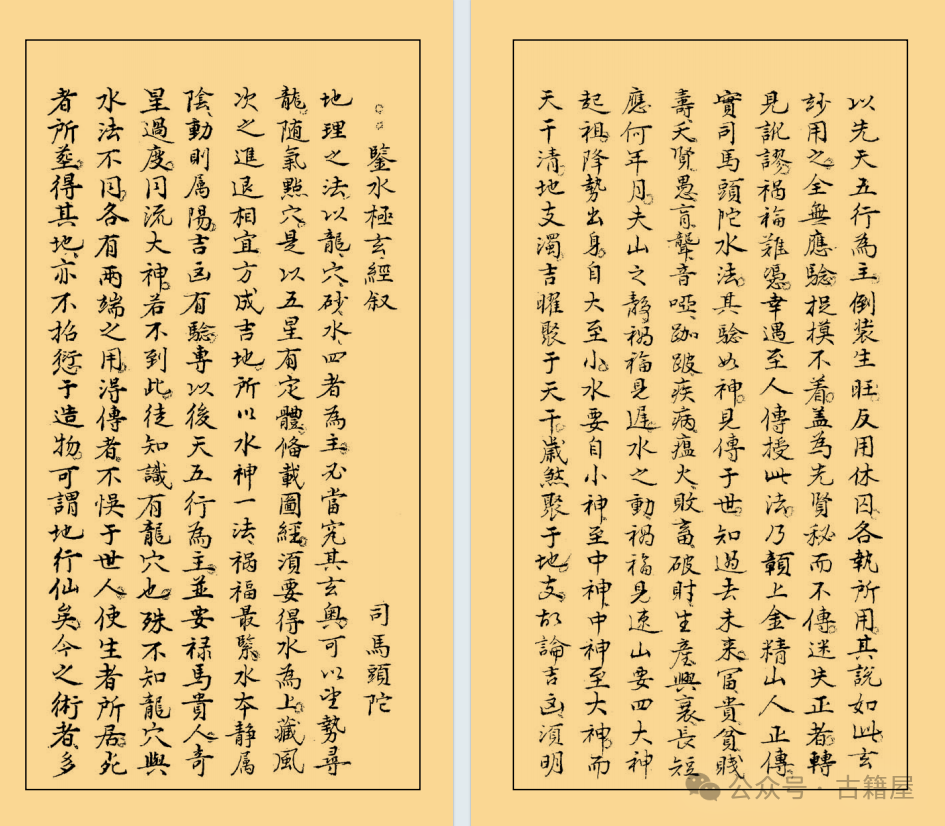 鑒水極玄經叙 司馬頭陀
地理之法以龍穴砂水四者為主必當究其玄奥可以坐勢尋
龍随氣點穴是以五星有定體俻載圖經湏要得水為上藏風
次之進退相宜方成吉地所以水神一法禍福最緊水本静属
陰動則属陽吉凶有驗專以後天五行為主並安禄馬貴人奇
星過度同流大神若不到此徒知識有龍穴也殊不知龍穴與
水法不同各有兩端之用得傳者不悮于世人使生者所居死
者所塟得其地亦不招愆于造物可謂地行仙矣今之術者多
以先天五行為主倒装生旺反用休囚各執所用其説如此玄
玅用之全無應驗捉摸不着盖為先賢秘而不傳迷失正者轉
見訛謬禍福難憑幸遇至人傳授此法乃贑上金精山人正傳
實司馬頭陀水法其驗如神見傳于世知過去未来冨貴貧賤
壽夭賢愚盲聾音啞跏跛疾病瘟火敗畜破財生産興衰長短
應何年月夫山之静禍福見遅水之動禍福見速山要四大神
起祖降勢出身自大至小水要自小神至中神中神至大神而
天干清地支濁吉曜聚于天干歳煞聚于地支故論吉凶湏明
公众号·古籍屋